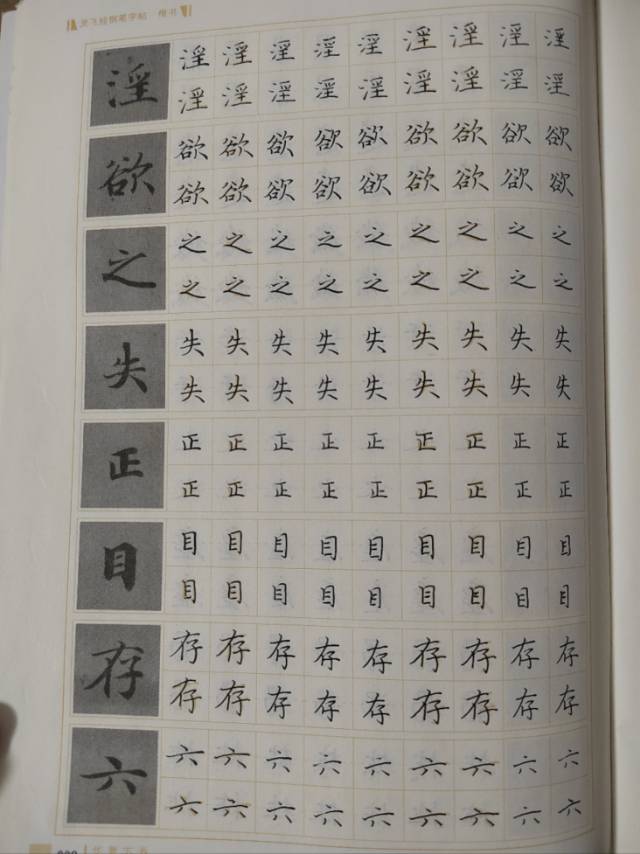 灵飞经钢笔字帖 楷书
淫 淫 淫 淫 淫 淫 淫 淫 淫 淫
淫 淫 淫 淫 淫 淫 淫 淫 淫
欲 欲 欲 欲 欲 欲 欲 欲 欲 欲
欲 欲 欲 欲 欲 欲 欲 欲 欲
之 之 之 之 之 之 之 之 之 之
之 之 之 之 之 之 之 之 之
失 失 失 失 失 失 失 失 失 失
失 失 失 失 失 失 失 失 失
正 正 正 正 正 正 正 正 正 正
正 正 正 正 正 正 正 正 正
目 目 目 目 目 目 目 目 目 目
目 目 目 目 目 目 目 目 目
存 存 存 存 存 存 存 存 存 存
存 存 存 存 存 存 存 存 存
六 六 六 六 六 六 六 六 六 六
六 六 六 六 六 六 六 六 六